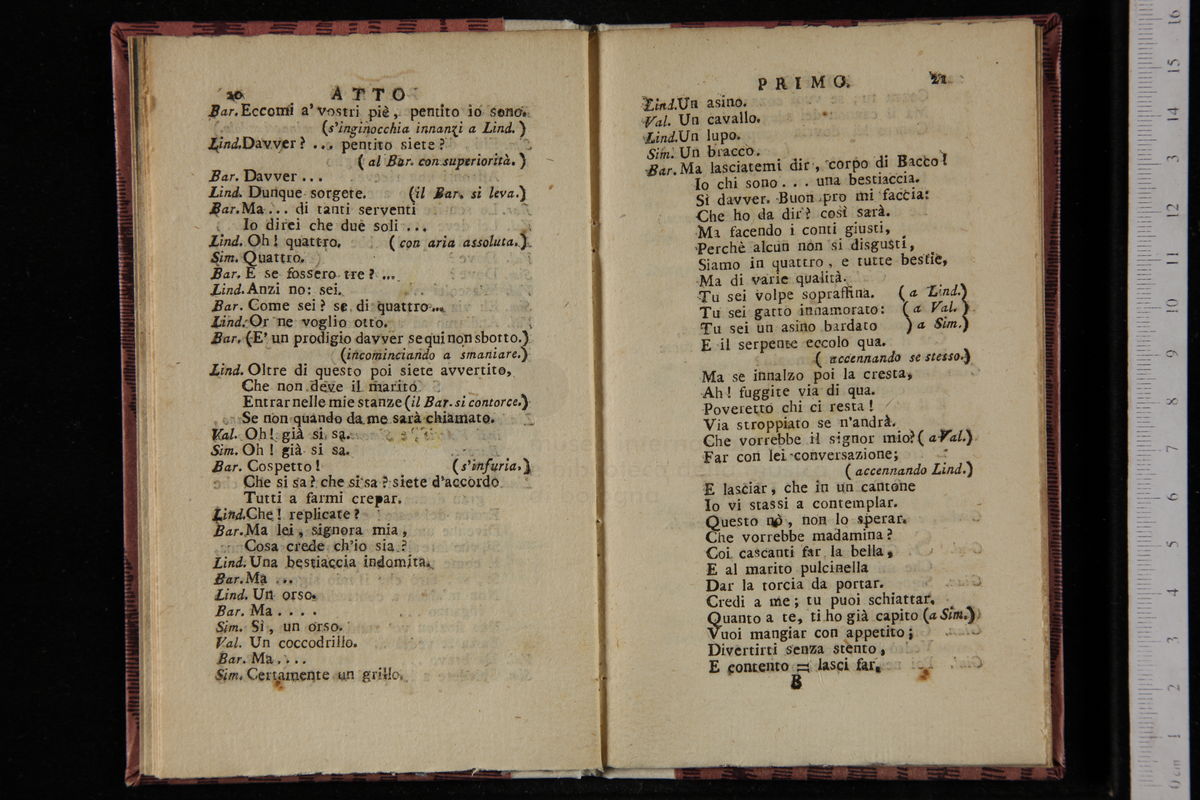 20 ATTO
Bar. Eccomi a' vostri piè, pentito io sono.
(s'inginocchia innanzi a Lind.)
Lind. Davver? ... pentito siete?
(al Bar. con superiorità.)
Bar. Davver ...
Lind. Dunque sorgete. (il Bar. si leva.)
Bar. Ma ... di tanti serventi
Io direi che due soli ...
Lind. Oh! quattro. (con aria assoluta.)
Sim. Quattro.
Bar. E se fossero tre? ...
Lind. Anzi no: sei.
Bar. Come sei? se di quattro ...
Lind. Or ne voglio otto.
Bar. (E' un prodigio davver se qui non sbotto.)
(incominciando a smaniare.)
Lind. Oltre di questo poi siete avvertito,
Che non deve il marito
Entrar nelle mie stanze (il Bar. si contorce.)
Se non quando da me sarà chiamato.
Val. Oh! già si sa.
Sim. Oh! già si sa.
Bar. Cospetto! (s'infuria.)
Che si sa? che si sa? siete d'accordo
Tutti a farmi crepar.
Lind. Che! replicate?
Bar. Ma lei, signora mia,
Cosa crede ch'io sia?
Lind. Una bestiaccia indomita.
Bar. Ma ...
Lind. Un orso.
Bar. Ma ....
Sim. Sì, un orso.
Val. Un coccodrillo.
Bar. Ma ....
Sim. Certamente un grillo.
PRIMO. 21
Lind. Un asino.
Val. Un cavallo.
Lind. Un lupo.
Sim. Un bracco.
Bar. Ma lasciatemi dir, corpo di Bacco!
Io chi sono ... una bestiaccia.
Sì davver. Buon pro mi faccia:
Che ho da dir? così sarà.
Ma facendo i conti giusti,
Perchè alcun non si disgusti,
Siamo in quattro, e tutte bestie,
Ma di varie qualità.
Tu sei volpe sopraffina. (a Lind.)
Tu sei gatto innamorato: (a Val.)
Tu sei un asino bardato )a Sim.)
E il serpente eccolo qua.
( accennando se stesso.)
Ma se innalzo poi la cresta,
Ah! fuggite via di qua.
Poveretto chi ci resta!
Via stroppiato se n'andrà.
Che vorrebbe il signor mio? (a Val.)
Far con lei conversazione;
(accennando Lind.)
E lasciar, che in un cantone
Io vi stassi a contemplar.
Questo nò, non lo sperar.
Che vorrebbe madamina?
Coi cascanti far la bella,
E al marito pulcinella
Dar la torcia da portar.
Credi a me; tu puoi schiattar.
Quanto a te, ti ho già capito (a Sim.)
Vuoi mangiar con appetito;
Divertirti senza stento,
E contento = lasci far.
B